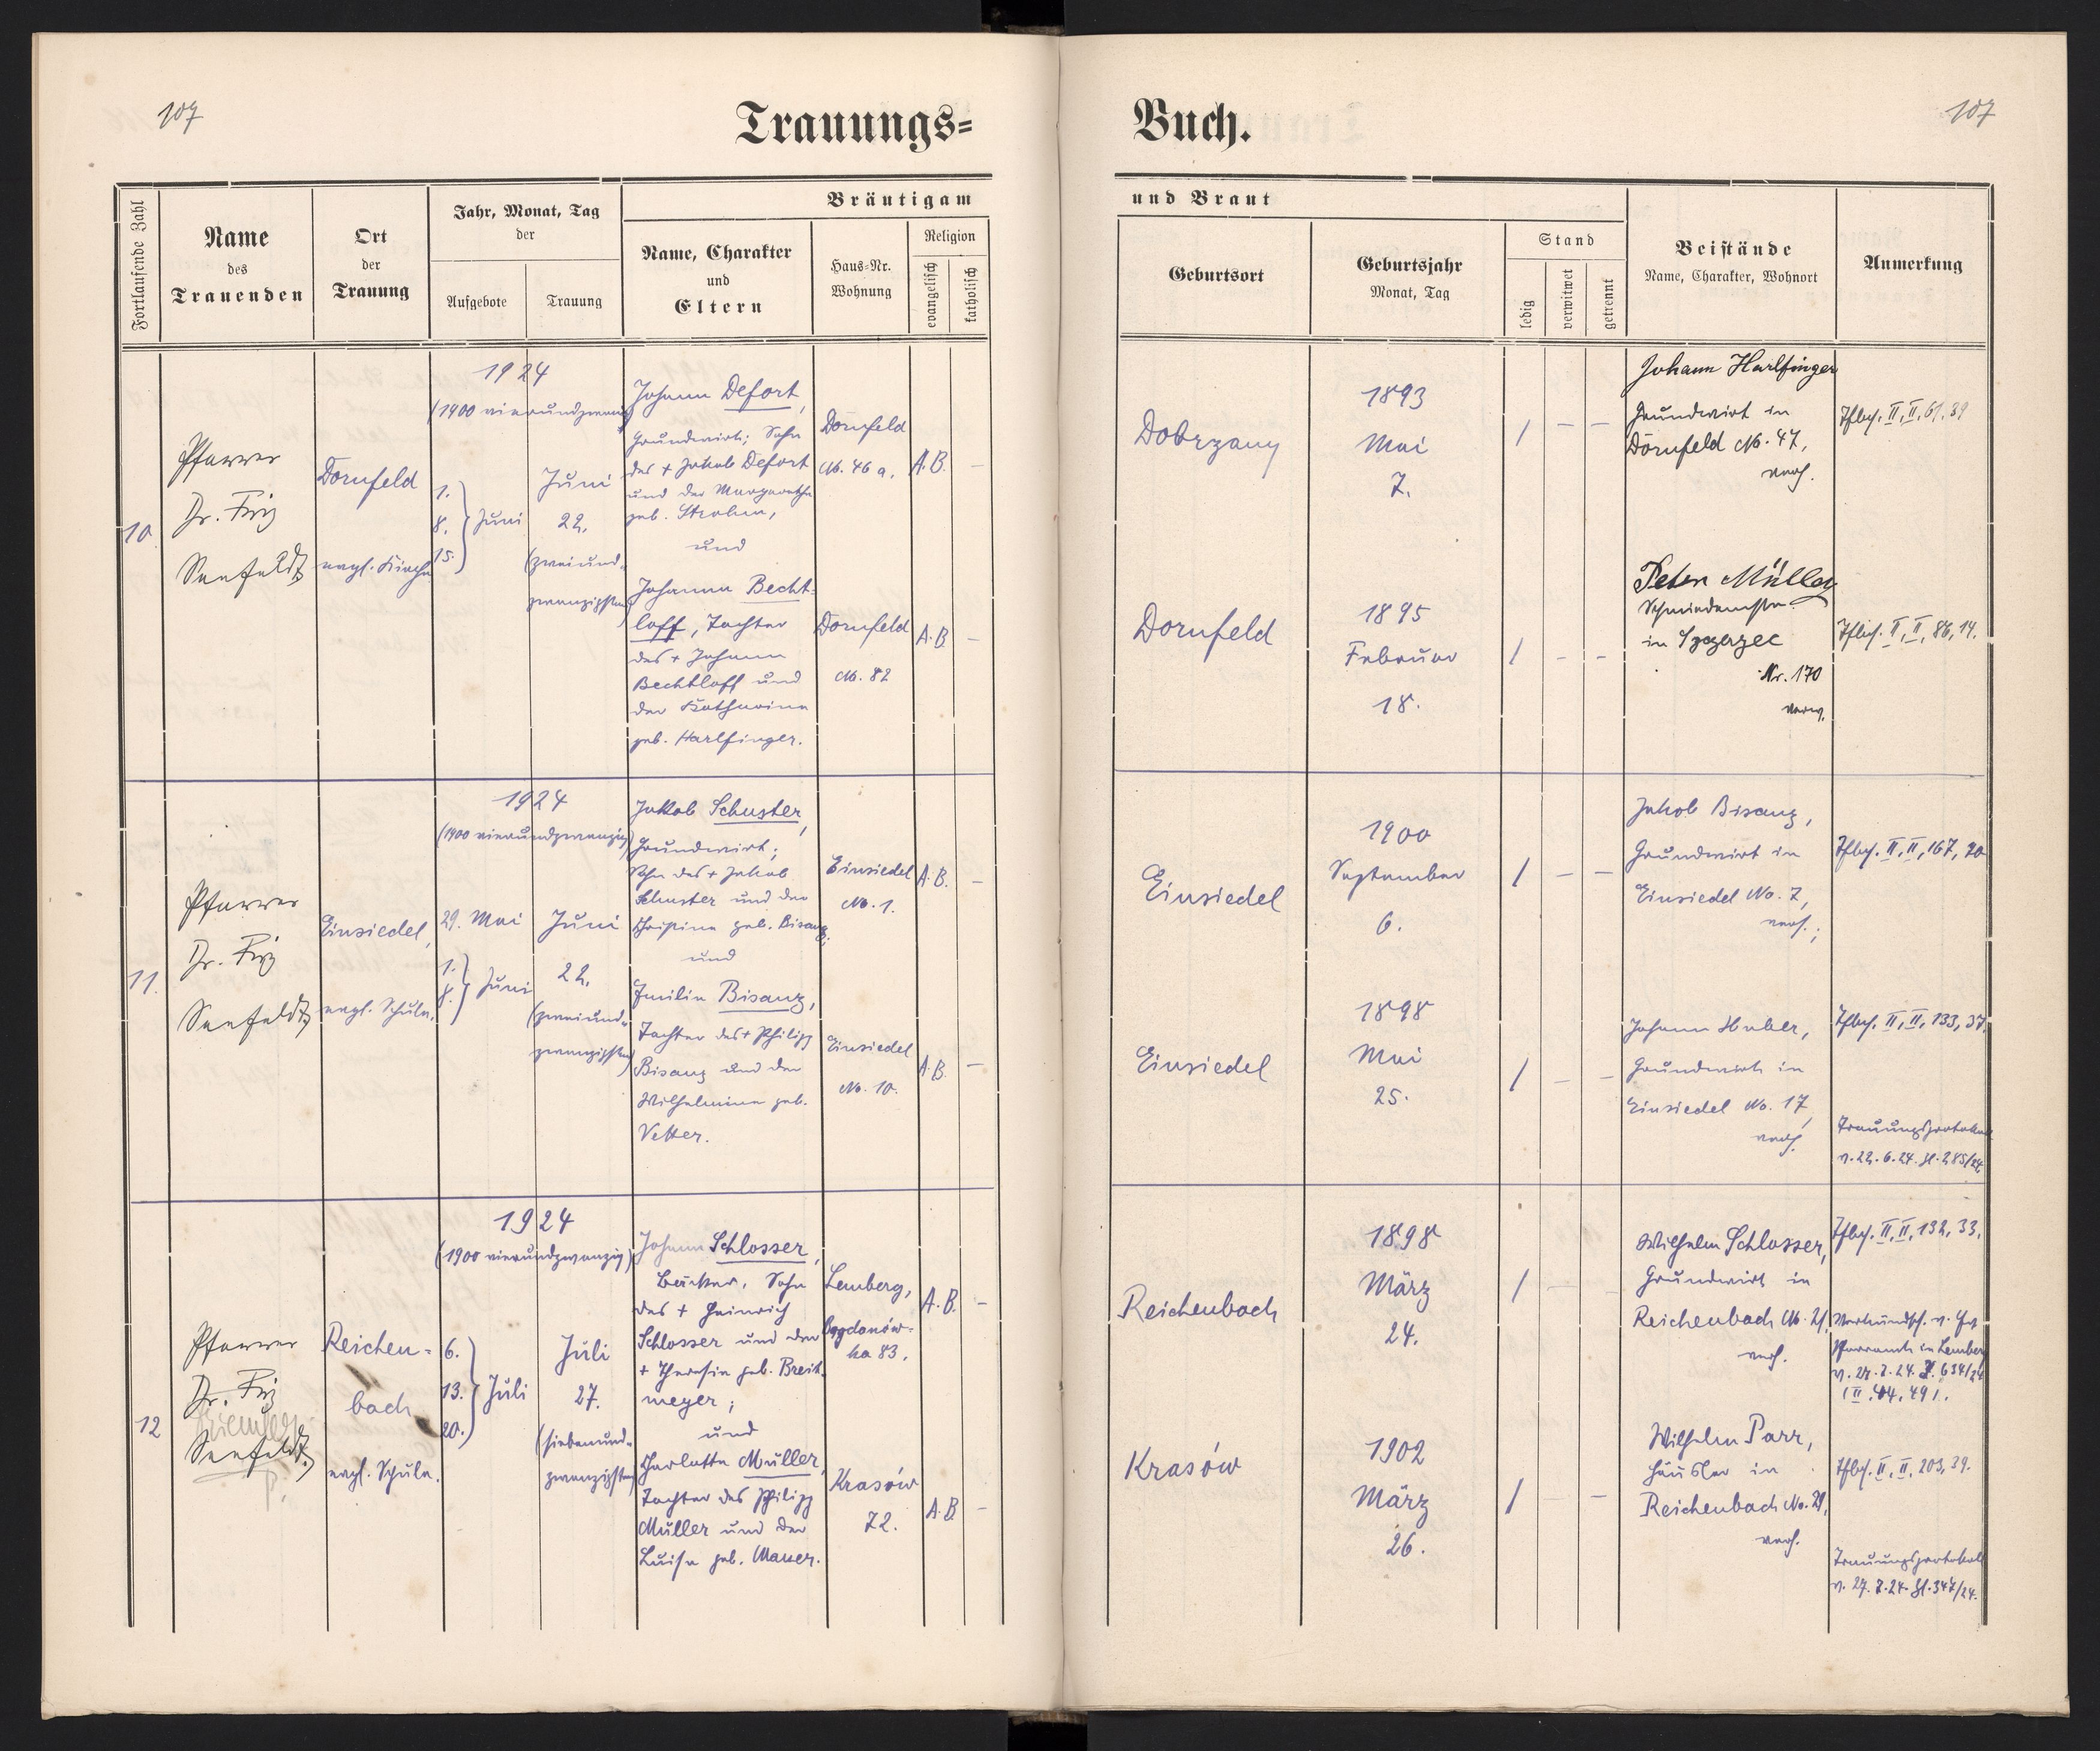 107
Trauungs=
Buch.
107
Fortlaufende Zahl
Name
des
Trauenden
Ort
der
Trauung
Jahr, Monat, Tag
der
Aufgebote
Trauung
Bräutigam
Name, Charakter
und
Eltern
Haus=Nr.
Wohnung
Religion
evangelisch
katholisch
und Braut
Geburtsort
Geburtsjahr
Monat, Tag
Stand
ledig
verwitwet
getrennt
Beistände
Name, Charakter, Wohnort
Anmerkung
10.
Pfarrer
Dr. Friz
Seefeldt
Dornfeld
evgl. Kirche
1924
(1900 vierundzwanzig)
1.
8.
15.
Juni
Juni
22.
(zweiund=
zwanzigsten)
Johann Defort,
Grundwirt; Sohn
des + Jakob Defort
und der Margarethe
geb. Strohm,
und
Johanna Becht=
loff, Tochter
des + Johann
Bechtloff und
der Katharina
geb. Harlfinger.
Dornfeld
No. 46 a.
A.B.
–
Dornfeld
No. 82
A.B.
–
Dobrzany
1893
Mai
7.
/ – –
Dornfeld
1895
Februar
18.
/ – –
Johann Harlfinger
Grundwirt in
Dornfeld No. 47,
verh.
Peter Müller
Schmiedemstr.
in Szczerzec
Nr. 170
verw.
Tfbch. II, II, 61, 39
Tfbch. II, II, 86, 14.
11.
Pfarrer
Dr. Friz
Seefeldt
Einsiedel,
evgl. Schule.
1924
(1900 vierundzwanzig)
29. Mai
1.
8.
Juni
Juni
22.
(zweiund=
zwanzigsten)
Jakob Schuster,
Grundwirt;
Sohn des + Jakob
Schuster und der
Christine geb. Bisanz;
und
Emilie Bisanz,
Tochter des + Philipp
Bisanz und der
Wilhelmine geb.
Vetter.
Einsiedel
No. 1.
A.B.
–
Einsiedel
No. 10.
A.B.
–
Einsiedel
1900
September
6.
/ – –
Einsiedel
1898
Mai
25.
/ – –
Jakob Bisanz,
Grundwirt in
Einsiedel No. 7,
verh.;
Johann Huber,
Grundwirt in
Einsiedel No. 17,
verh.
Tfbch. II, II, 167, 70
Tfbch. II, II, 133, 37.
Trauungsprotokoll
v. 22. 6. 24. Zl. 285/24
12
Pfarrer
Dr. Friz
Seefeldt.
Reichen=
bach
evgl. Schule.
1924
(1900 vierundzwanzig)
6.
13.
20.
Juli
Juli
27.
(siebenund=
zwanzigsten)
Johann Schlosser,
Bäcker, Sohn
des + Heinrich
Schlosser und der
+ Theresia geb. Breit=
meyer;
und
Charlotte Müller,
Tochter des Philipp
Müller und der
Luise geb. Mauer.
Lemberg,
Bogdanów=
ka 83.
A.B.
–
Krasów
72.
A.B.
–
Reichenbach
1898
März
24.
/ – –
Krasów
1902
März
26.
/ – –
Wilhelm Schlosser,
Grundwirt in
Reichenbach No. 21,
verh.
Wilhelm Parr,
Häusler in
Reichenbach No. 29,
verh.
Tfbch. II, II, 132, 33.
Pfarramts in Lemberg
Tfbch. II, II, 203, 39.
Trauungsprotokoll
v. 27. 7. 24. Zl. 347/24.